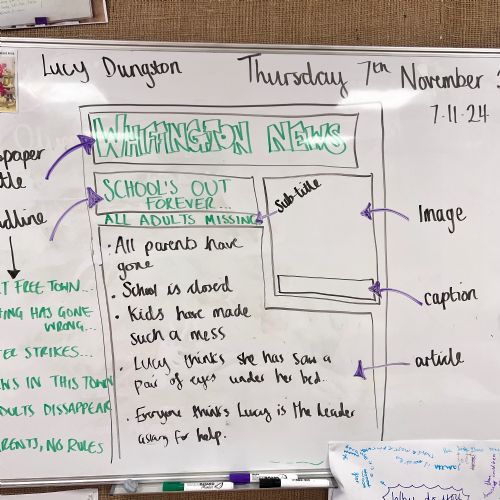 Lucy Dungston
Thursday 7th November
7.11.24
WHIFFINGTON NEWS
SCHOOL'S OUT
FOREVER...
ALL ADULTS MISSING
Sub-title
Image
caption
article
· All parents have
gone
· School is closed
· Kids have made
such a mess
· Lucy thinks she has saw a
pair of eyes under her bed.
· Everyone thinks Lucy is the leader
asking for help.
FREE TOWN...
HAS GONE
WRONG...
STRIKES...
IN THIS TOWN
NO RULES